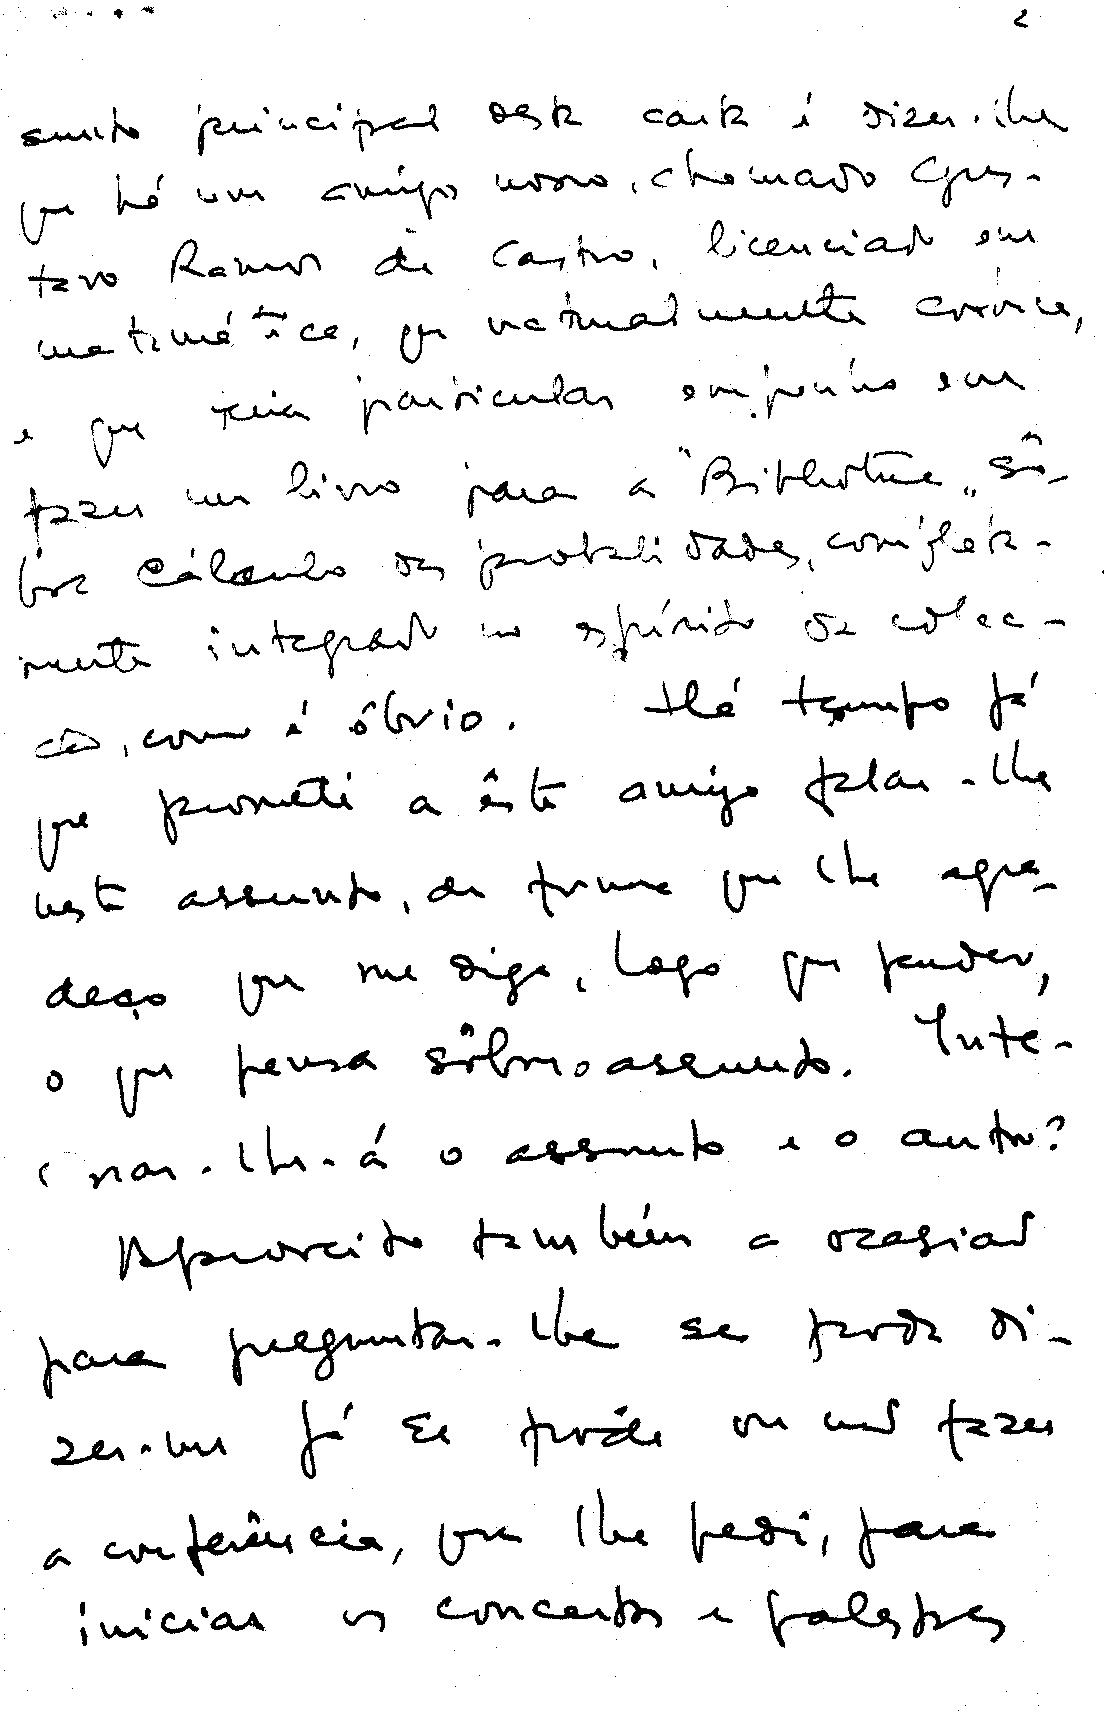 2
sunto principal desta carta é dizer-lhe
que há um amigo nosso, chamado Gus-
tavo Ramos de Castro, licenciado em
matemática, que naturalmente conhece,
e que teria particular empenho em
fazer um livro para a "Biblioteca" sô-
bre Cálculo das probalidades, completa-
mente integrado no espírito da colec-
ção, como é óbvio. Há tempo já
que prometi a êste amigo falar-lhe
neste assunto, de forma que lhe agra-
deço que me diga, logo que puder,
o que pensa sôbre o assunto. Inte-
ressar-lhe-á o assunto e o autor?
Aproveito também a ocasião
para preguntar-lhe se pode di-
zer-me já se pode ou não fazer
a conferência, que lhe pedi, para
iniciar os concertos e palestras